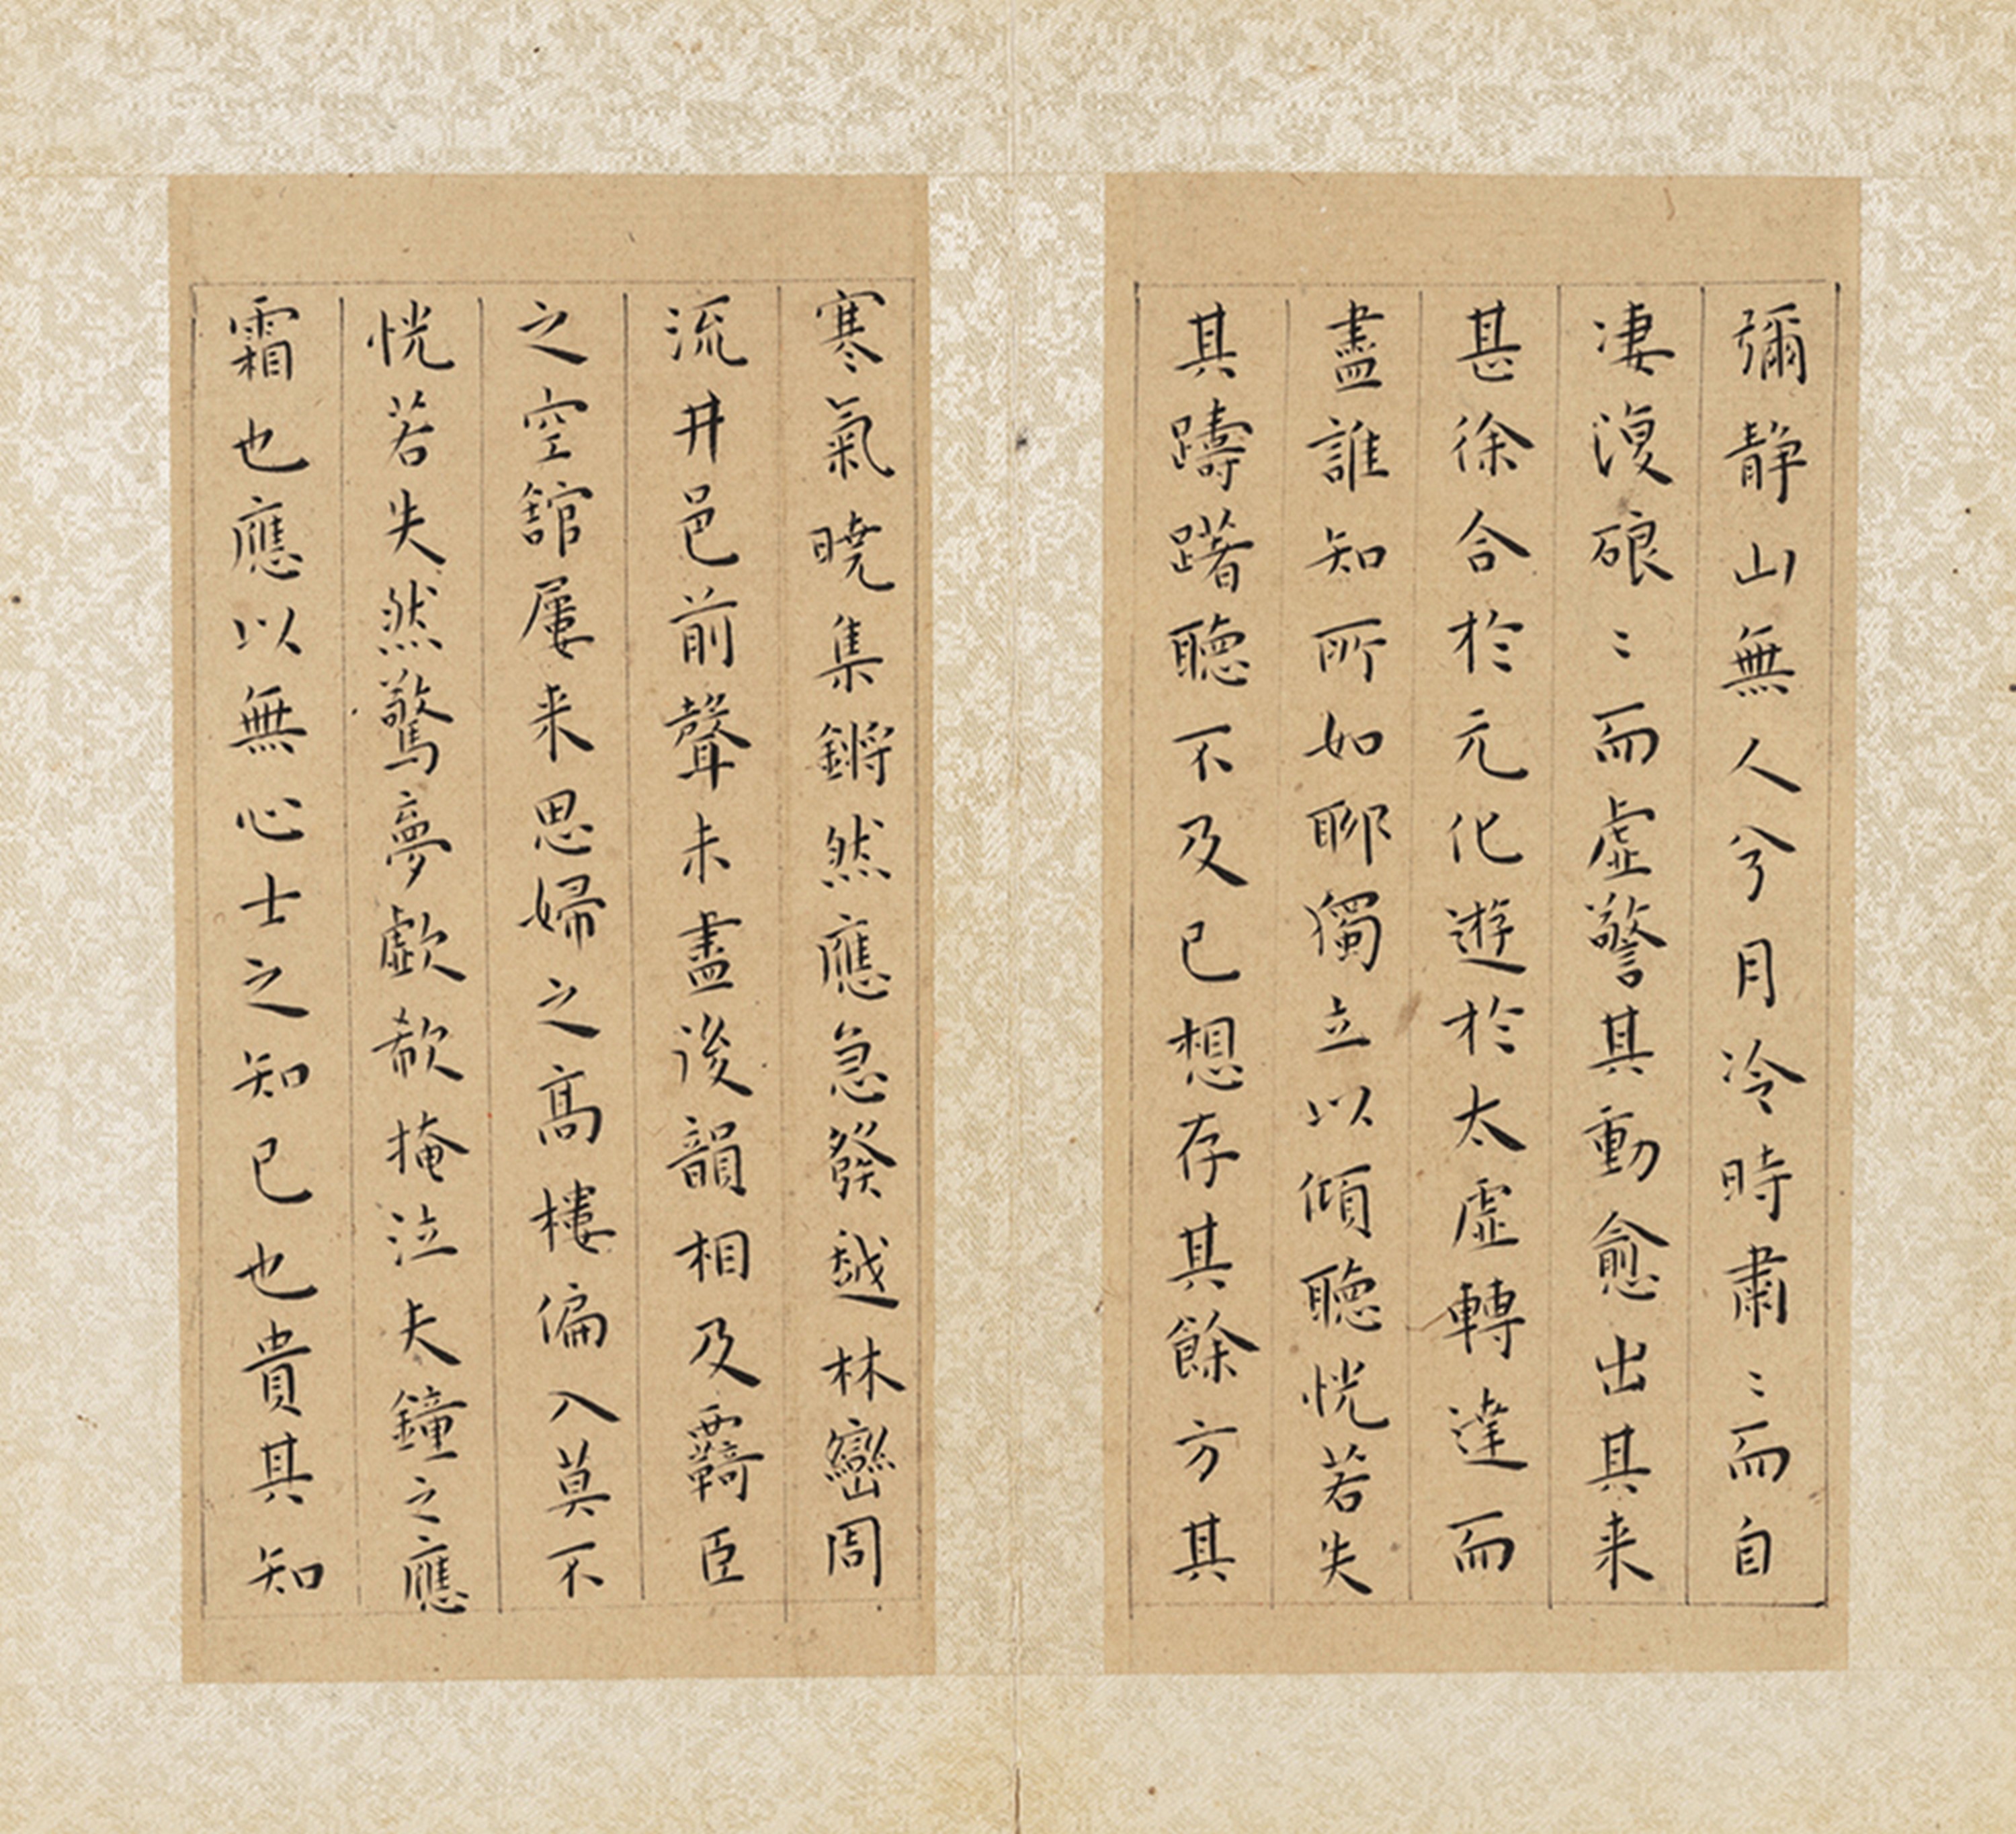 彌静山無人兮月冷時肅〻而自
凄澓硠〻而虛警其動愈出其来
甚徐合於元化遊於太虛轉達而
盡誰知所如聊獨立以傾聽恍若失
其躊躇聽不及已想存其餘方其
寒氣曉集鏘然應急發越林巒周
流井邑前聲未盡後韻相及羈臣
之空舘屢来思婦之高樓偏入莫不
恍若失然驚夢歔欷掩泣夫鐘之應
霜也應以無心士之知已也貴其知